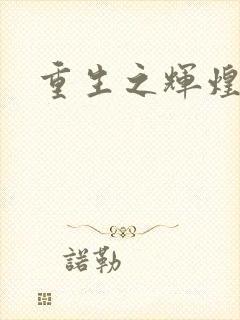 重生之輝煌
諾勒